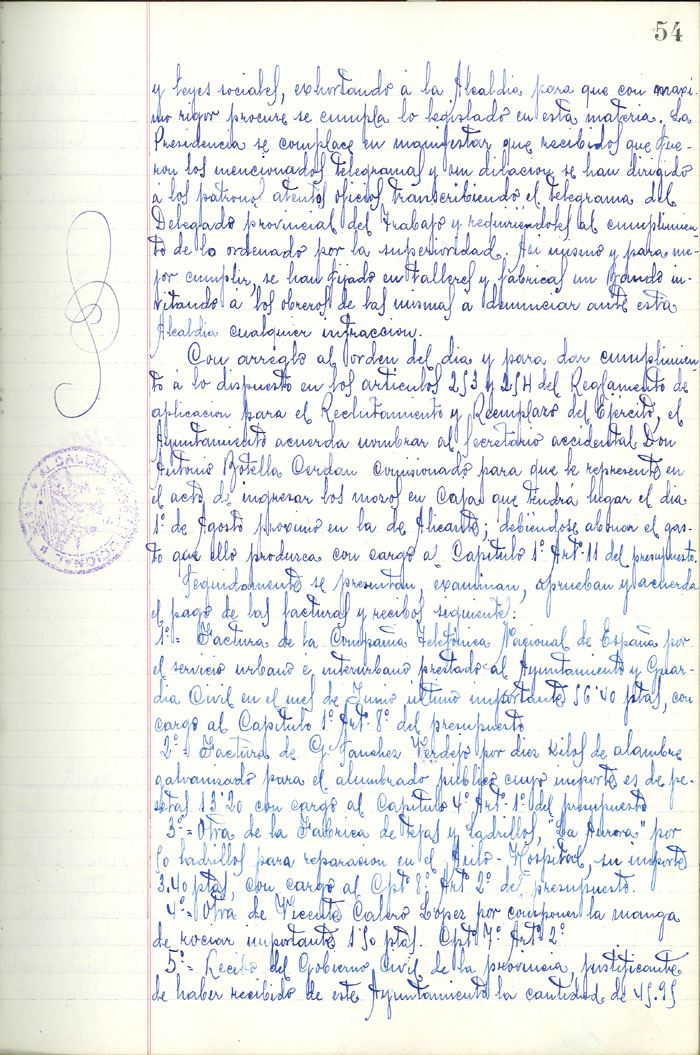 54
y leyes sociales, exhortando á la Alcaldia para que con maxi-
mo rigor procure se cumpla lo legislado en esta materia. La
Presidencia se complace en manifestar que recibidos que fue-
ron los mencionados telegramas y sin dilacion se han dirigido
á los patronos atentos oficios transcribiendo el telegrama del
Delegado provincial del Trabajo y requiriendoles al cumplimien
to de lo ordenado por la superioridad. Asi mismo y para me-
jor cumplir, se han fijado en talleres y fabricas un bando in-
vitando á los obreros de las mismas a denunciar ante esta
Alcaldia cualquier infraccion.
Con arreglo al orden del dia y para dar cumplimien
to á lo dispuesto en los articulos 253 y 254 del Reglamento de
aplicacion para el Reclutamiento y Reemplazo del Ejercito, el
Ayuntamiento acuerda nombrar al Secretario accidental Don
Antonio Botella Cerdan comisionado para que le represente en
el acto de ingresar los mozos en Caja que tendrá lugar el dia
1º de Agosto proximo en la de Alicante; debiendose abonar el gas-
to que ello produzca con cargo al Capitulo 1º Artº 11 del presupuesto.
Seguidamente se presentan, examinan, aprueban y acuerda
el pago de las facturas y recibos seguiente:
1º= Factura de la Compañia Telefónica Nacional de España por
el servicio urbano e interurbano prestado al Ayuntamiento y Guar-
dia Civil en el mes de Junio ultimo importante 56'40 ptas, con
cargo al Capitulo 1º Artº 8º del presupuesto
2º= Factura de G. Sanchez Verdejo por diez kilos de alambre
galvanizado para el alumbrado publico cuyo importe es de pe-
setas 13'20 con cargo al Capitulo 4º Artº 1º del presupuesto
3º= Otra de la Fabrica de tejas y ladrillos, "La Aurora" por
50 ladrillos para reparacion en el Asilo-Hospital, su importe
3.40 ptas, con cargo al Cptº 8º Artº 2º del presupuesto.
4º= Otra de Vicente Calero Lopez por componer la manga
de rociar importante 1'50 ptas. Cptº 7º Artº 2º
5º= Recibo del Gobierno Civil de la provincia, justificante
de haber recibido de este Ayuntamiento la cantidad de 45.95
ALCALDIA